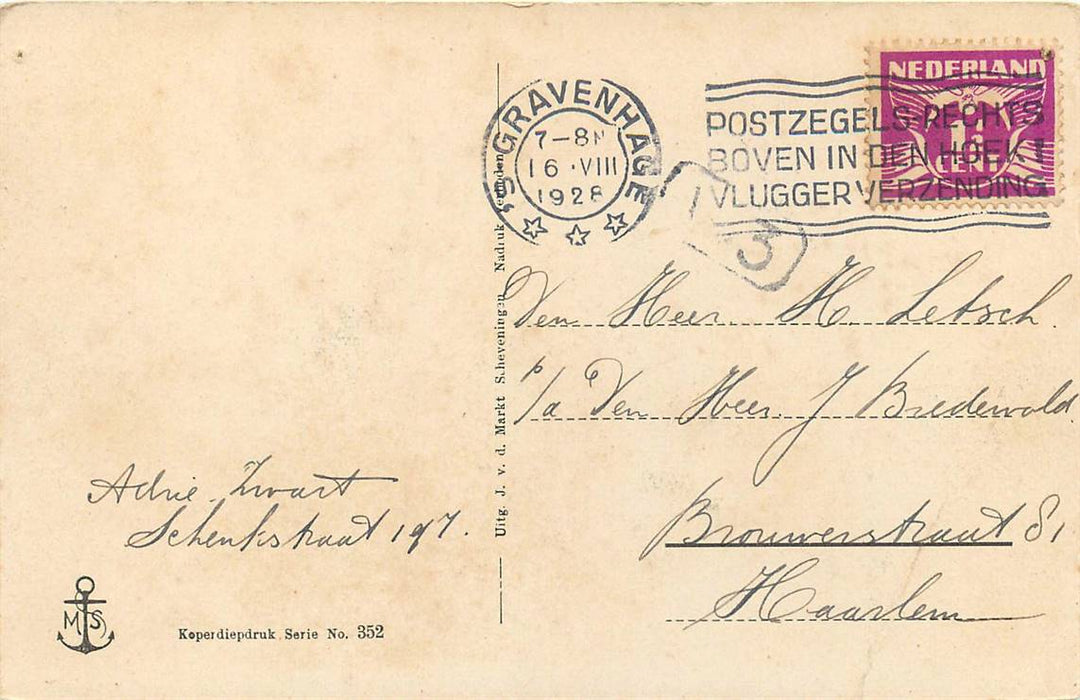 'S GRAVENHAGE
7-8N
16 · VIII
1928
POSTZEGELS RECHTS
BOVEN IN DEN HOEK!
VLUGGER VERZENDING
NEDERLAND
1½
CENT
3
Den Heer H. Letsch.
p/a Den Heer J Bredewold
Brouwerstraat 81
Haarlem
Adrie Zwart
Schenkstraat 197.
Uitg. J. v. d. Markt Scheveningen Nadruk verboden
M S
Koperdiepdruk Serie No. 352